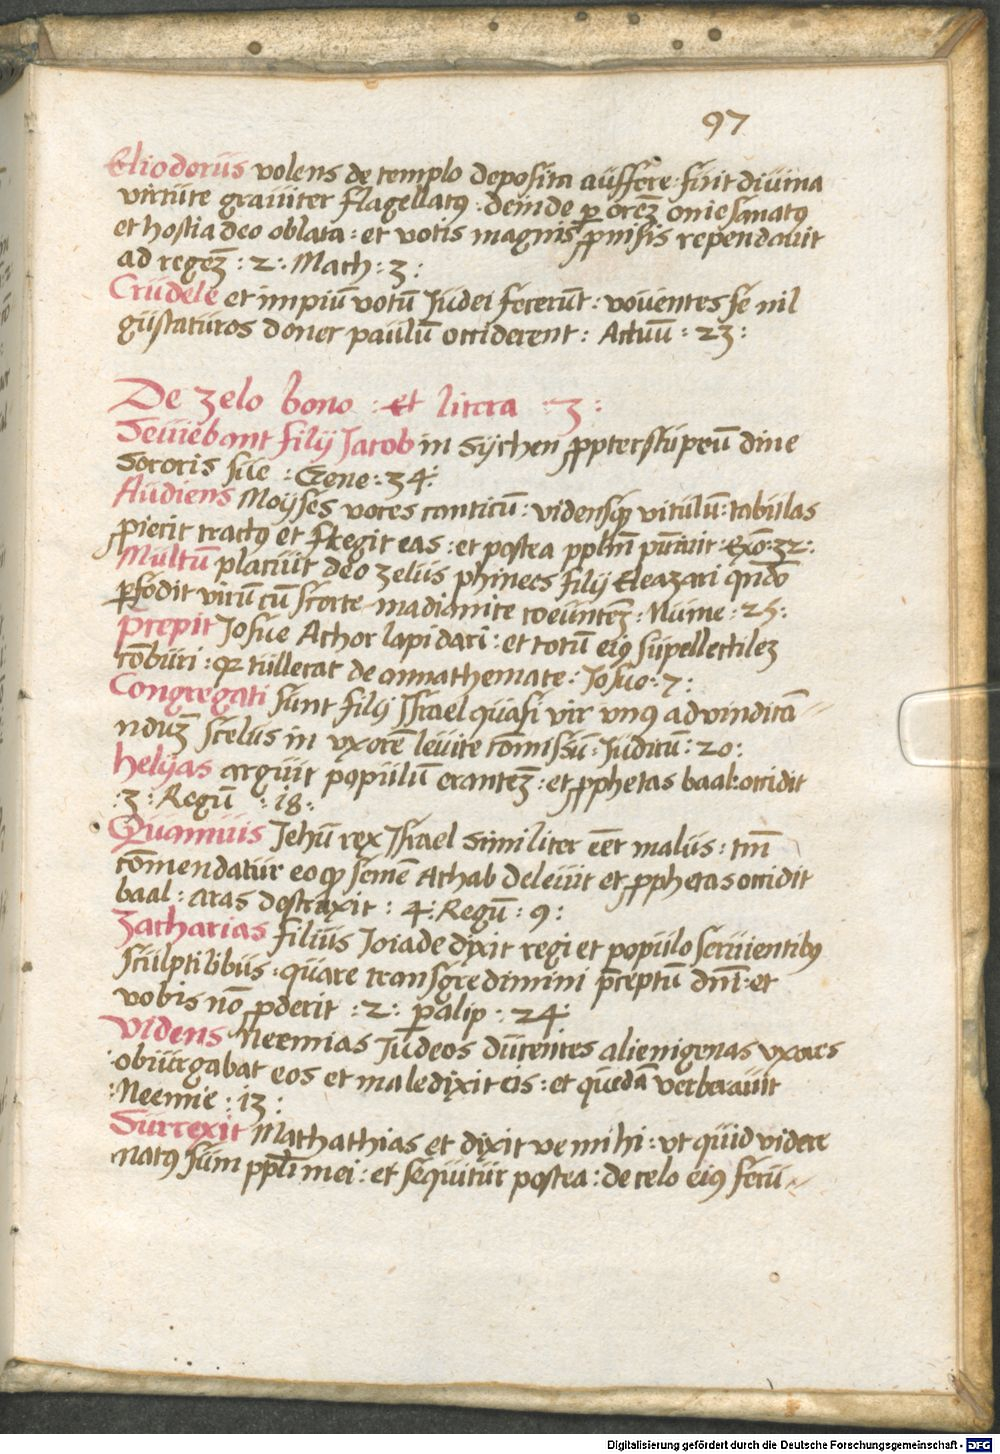 97
Eliodorus volens de templo deposita aufferre : fuit divina
virtute graviter flagellatꝰ : deinde ꝑ orēz onie sanatus
et hostia deo oblata : et votis magnis ꝓmisis rependavit
ad regēz : 2 : Mach : 3 :
Crudele et impiū votū Judei fecerūt : voventes se nil
gustaturos donec paulū occiderent : Actuū : 23 :
De zelo bono : et litera : z :
Seviebant filij Jacob in Sychen ꝓpter stuprū dine
Sororis sue : Gene : 34 :
Audiens Moyses voces canticū : vidensqꝫ vitulū : tabulas
ꝓiecit tractꝰ et fregit eas : et postea pplm̄ punivit : exo : 32 :
Multū placuit deo zelus phinees filij Eleazari qn̄do
ꝑfodit virū cū scorte madianite coeuntēz : Nume : 25 :
Precepit Josue Achor lapidari : et totū eiꝰ supellectilez
cōburi : qꝛ tullerat de annathemate : Josue : 7 :
Congregati sunt filij Israel quasi vir unꝰ ad vindicā
nduꝫ scelus in uxorē levite cōmissū : Judicū : 20 :
helyas arguit populū erantēz : et ꝓphetas baal : occidit
: 3 : Regū : 18 :
Quamuis Jehū rex Israel similiter eēt malus : tm̄
cōmendatur eo qꝫ semē Achab delevit et ꝓphetas occidit
baal : aras destruxit : 4 : Regū : 9 :
Zacharias filius Joiade dixit regi et populo servientibꝰ
sculptilibus : quare transgredimini p̄ceptū dn̄i : et
vobis nō ꝓderit : 2 : paralip : 24 :
Videns Neemias Judeos ducentes alienigenas uxores
obiurgabat eos et maledixit eis : et quedā verberavit
: Neemie : 13 :
Surrexit Mathathias et dixit ve mihi : ut quid videre
natꝰ sum ppl̄i mei : et sequitur postea : de celo eiꝰ fecū
Digitalisierung gefördert durch die Deutsche Forschungsgemeinschaft - DFG